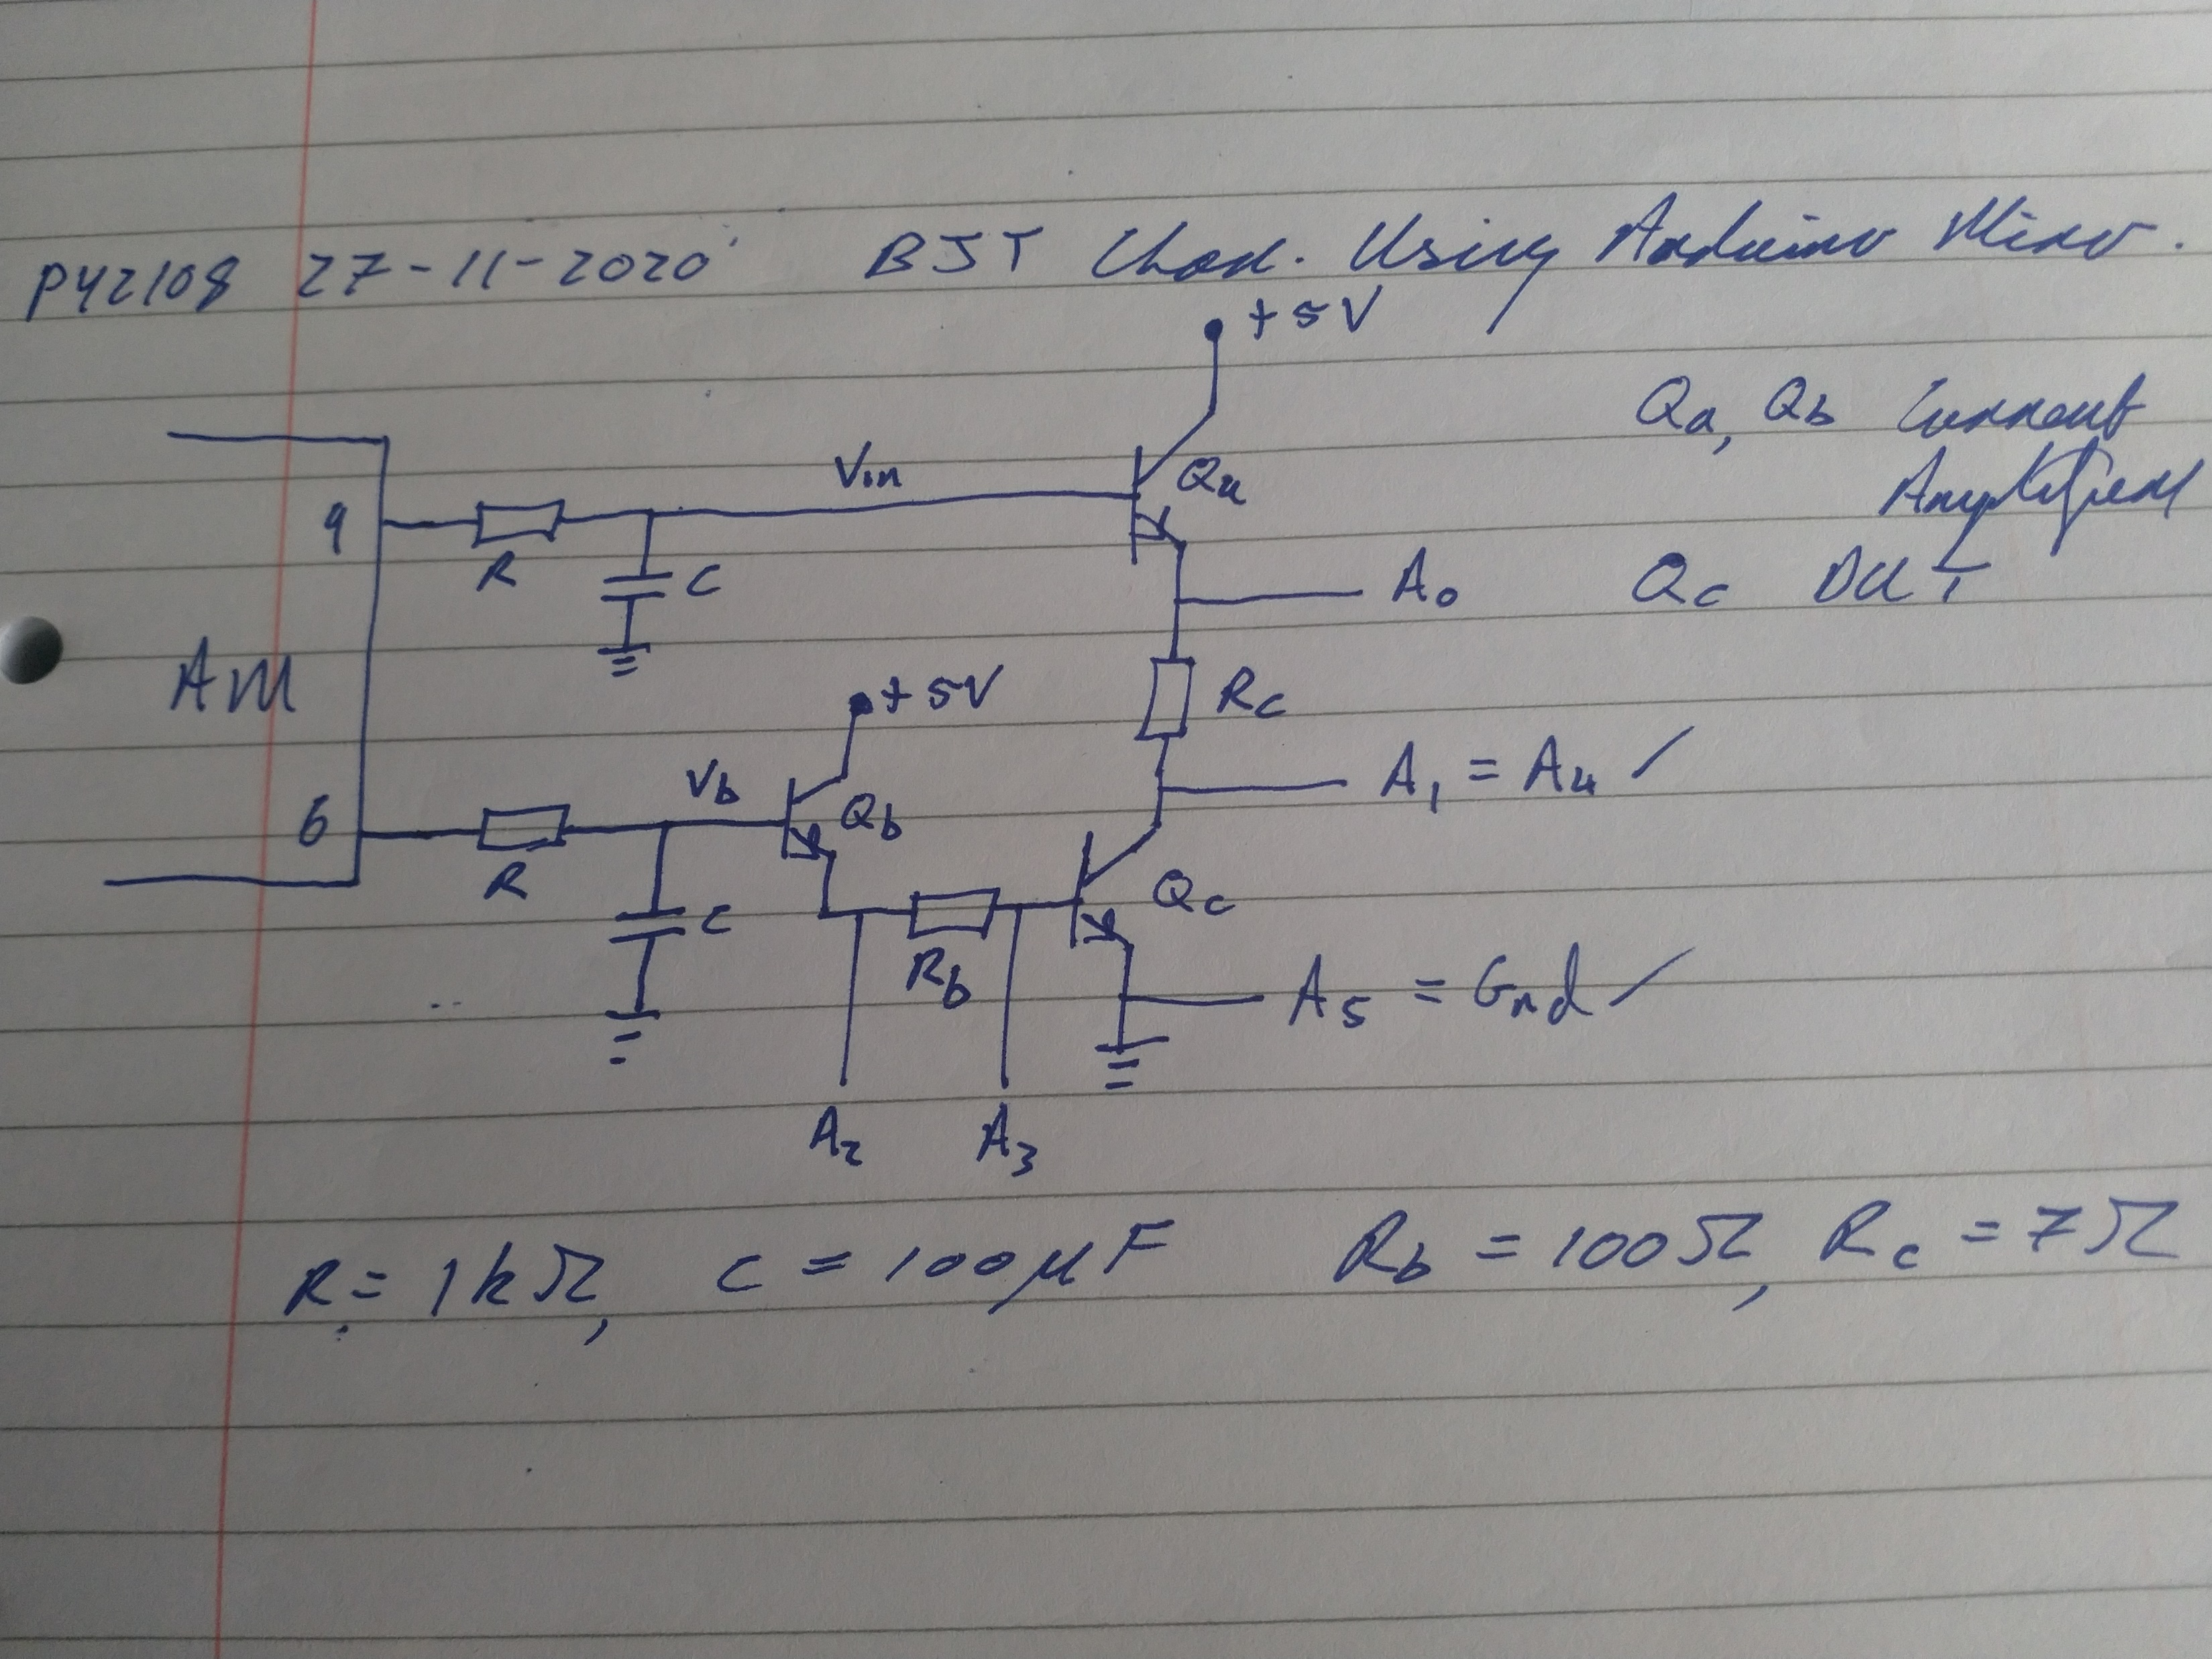 PY2108 27-11-2020 BJT Char. Using Arduino Micro.
+5V
Qa, Qb Current
Amplifiers
Vin
Qa
9
R
C
A0
Qc DUT
AM
+5V
Rc
Vb
A1 = A4 ✓
6
Qb
R
C
Qc
Rb
A5 = Gnd ✓
A2 A3
R = 1kΩ, C = 100μF Rb = 100Ω, Rc = 7Ω